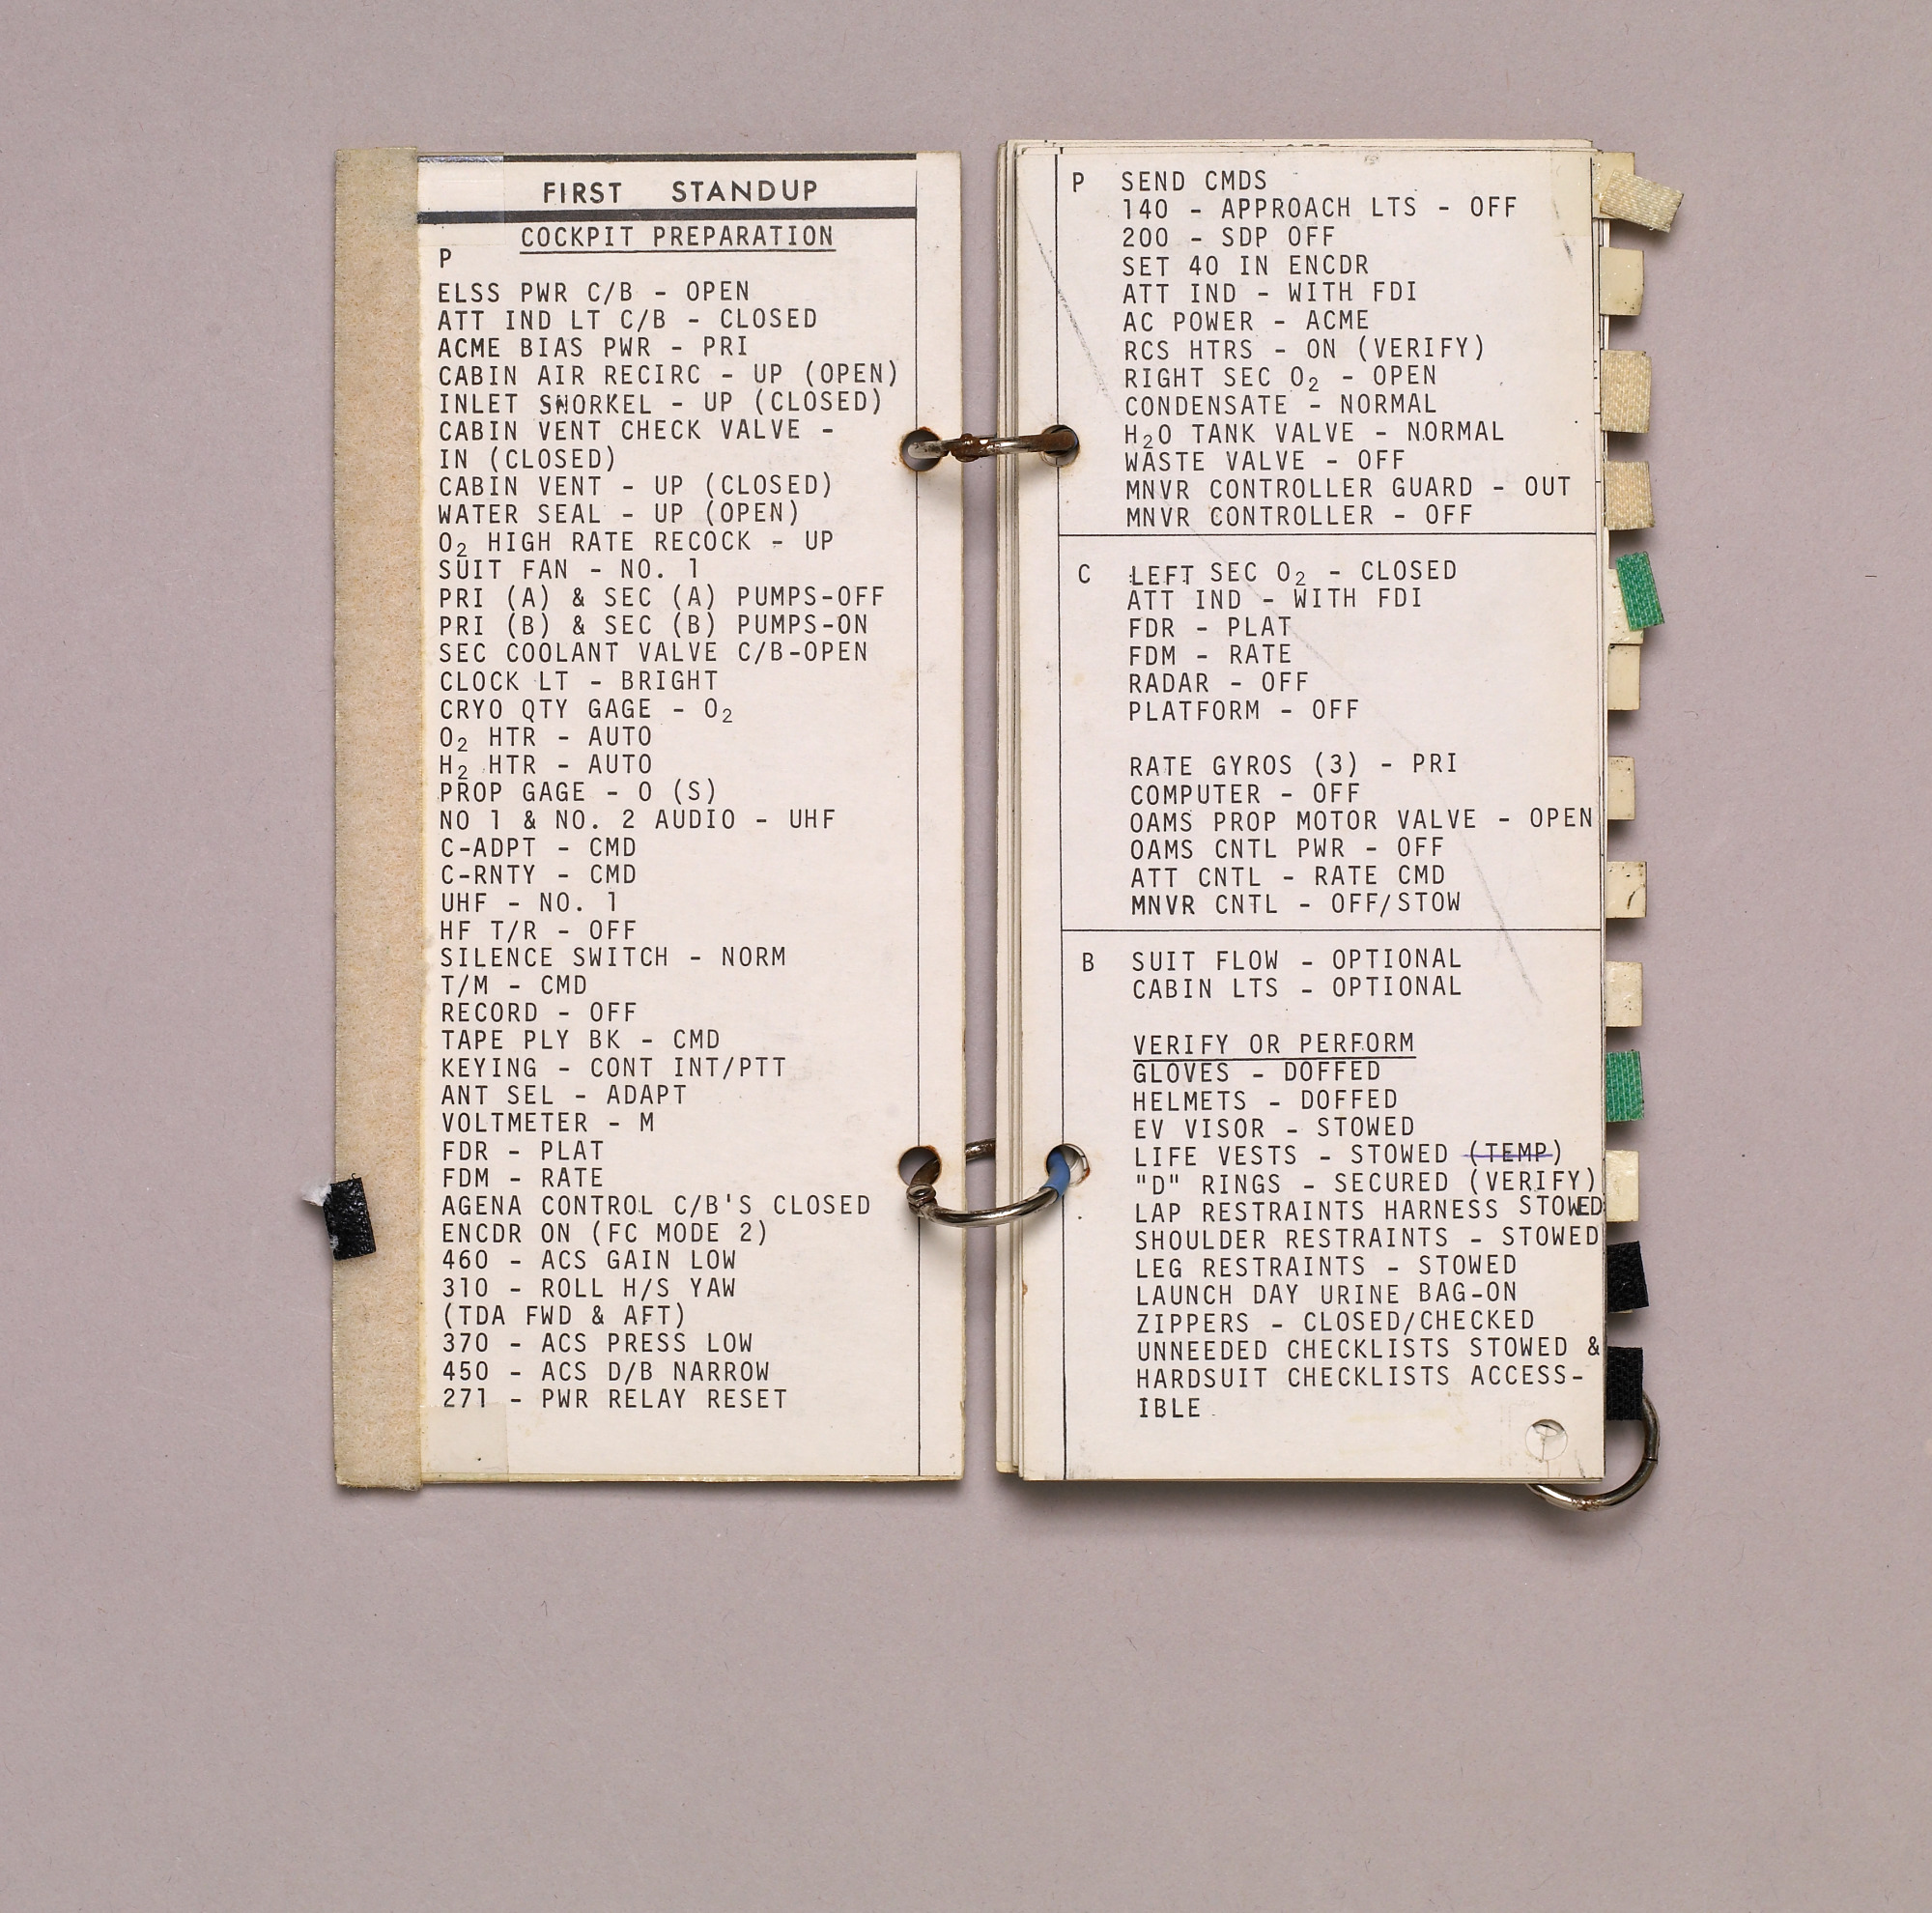 FIRST STANDUP
COCKPIT PREPARATION
P
ELSS PWR C/B - OPEN
ATT IND LT C/B - CLOSED
ACME BIAS PWR - PRI
CABIN AIR RECIRC - UP (OPEN)
INLET SNORKEL - UP (CLOSED)
CABIN VENT CHECK VALVE -
IN (CLOSED)
CABIN VENT - UP (CLOSED)
WATER SEAL - UP (OPEN)
O₂ HIGH RATE RECOCK - UP
SUIT FAN - NO. 1
PRI (A) & SEC (A) PUMPS-OFF
PRI (B) & SEC (B) PUMPS-ON
SEC COOLANT VALVE C/B-OPEN
CLOCK LT - BRIGHT
CRYO QTY GAGE - O₂
O₂ HTR - AUTO
H₂ HTR - AUTO
PROP GAGE - O (S)
NO 1 & NO. 2 AUDIO - UHF
C-ADPT - CMD
C-RNTY - CMD
UHF - NO. 1
HF T/R - OFF
SILENCE SWITCH - NORM
T/M - CMD
RECORD - OFF
TAPE PLY BK - CMD
KEYING - CONT INT/PTT
ANT SEL - ADAPT
VOLTMETER - M
FDR - PLAT
FDM - RATE
AGENA CONTROL C/B'S CLOSED
ENCDR ON (FC MODE 2)
460 - ACS GAIN LOW
310 - ROLL H/S YAW
(TDA FWD & AFT)
370 - ACS PRESS LOW
450 - ACS D/B NARROW
271 - PWR RELAY RESET
P SEND CMDS
140 - APPROACH LTS - OFF
200 - SDP OFF
SET 40 IN ENCDR
ATT IND - WITH FDI
AC POWER - ACME
RCS HTRS - ON (VERIFY)
RIGHT SEC O₂ - OPEN
CONDENSATE - NORMAL
H₂O TANK VALVE - NORMAL
WASTE VALVE - OFF
MNVR CONTROLLER GUARD - OUT
MNVR CONTROLLER - OFF
C LEFT SEC O₂ - CLOSED
ATT IND - WITH FDI
FDR - PLAT
FDM - RATE
RADAR - OFF
PLATFORM - OFF
RATE GYROS (3) - PRI
COMPUTER - OFF
OAMS PROP MOTOR VALVE - OPEN
OAMS CNTL PWR - OFF
ATT CNTL - RATE CMD
MNVR CNTL - OFF/STOW
B SUIT FLOW - OPTIONAL
CABIN LTS - OPTIONAL
VERIFY OR PERFORM
GLOVES - DOFFED
HELMETS - DOFFED
EV VISOR - STOWED
LIFE VESTS - STOWED (TEMP)
"D" RINGS - SECURED (VERIFY)
LAP RESTRAINTS HARNESS STOWED
SHOULDER RESTRAINTS - STOWED
LEG RESTRAINTS - STOWED
LAUNCH DAY URINE BAG-ON
ZIPPERS - CLOSED/CHECKED
UNNEEDED CHECKLISTS STOWED &
HARDSUIT CHECKLISTS ACCESS-
IBLE